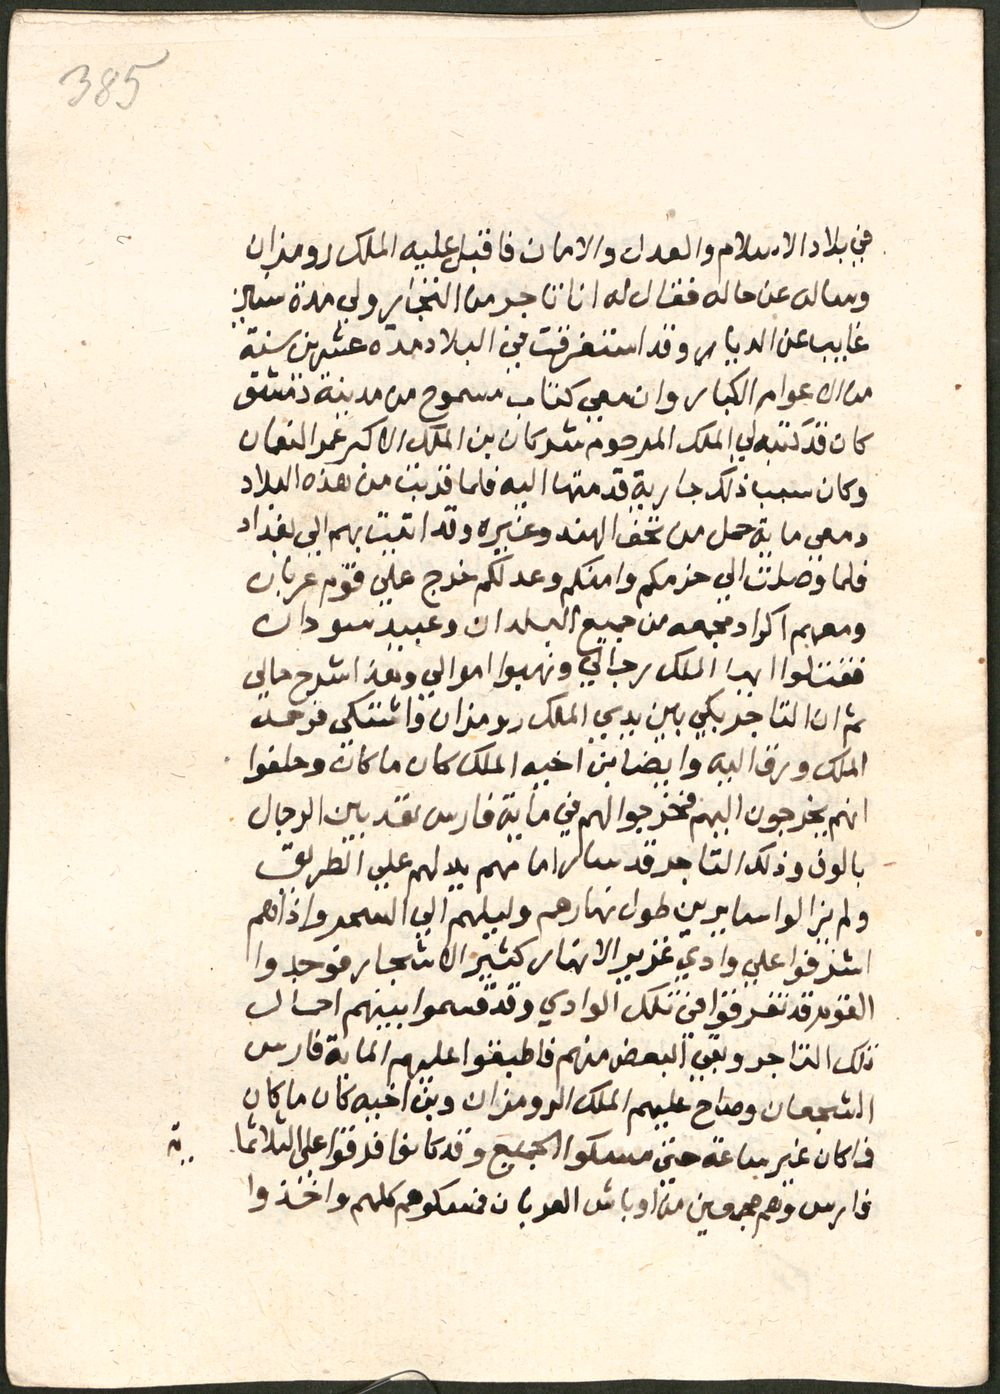 385
في بلاد الاسلام والعدل والامان فاقبل عليه الملك رومزان
وساله عن حاله فقال له انا تاجر من التجار ولي مدة سنين
غايب عن الديار وقد استغرقت في البلاد مدة عشرين سنة
من الاعوام الكبار وان معي كتاب مسموح من مدينة دمشق
كان قد كتبه لي الملك المرحوم شركان بن الملك الاكبر عمر النعمان
وكان سبب ذلك جارية قدمتها اليه فلما قربت من هذه البلاد
ومعي ماية حمل من تحف الهند وغيره وقد اتيت بهم الي بغداد
فلما وصلت الي حرمكم وامنكم وعدلكم خرج علي قوم عربان
ومعهم اكراد مجمعه من جميع البلدان وعبيد سودان
فقتلوا ايها الملك رجالي ونهبوا اموالي وهذا شرح حالي
ثم ان التاجر بكي بين يدي الملك رومزان واشتكى فرحمه
الملك ورق اليه وايضا بن اخيه الملك كان ما كان وحلفوا
انهم يخرجون اليهم فخرجوا لهم في ماية فارس تعد بين الرجال
بالوف وذلك التاجر قد سار امامهم يدلهم علي الطريق
ولم يزالوا سايرين طول نهارهم وليلهم الي السحر واذا هم
اشرفوا علي وادي غزير الانهار كثير الاشجار فوجدوا
القوم قد تفرقوا في تلك الوادي وقد قسموا بينهم احمال
ذلك التاجر وبقي البعض منهم فاطبقوا عليهم الماية فارس
الشجعان وصاح عليهم الملك الرومزان وبن اخيه كان ما كان
فما كان غير ساعة حتي مسكوا الجميع وقد كانوا فرقوا على الثلاثما
ية
فارس وهم مجموعين من اوباش العربان فمسكوهم كلهم واخذوا